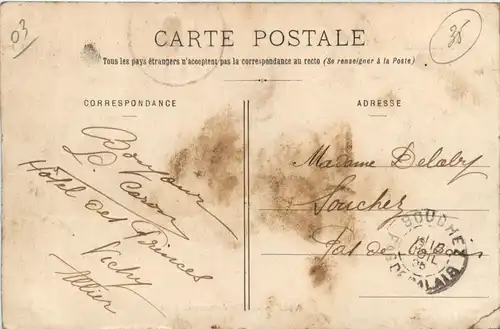 03
35
CARTE POSTALE
Tous les pays étrangers n'acceptent pas la correspondance au recto (Se renseigner à la Poste)
CORRESPONDANCE
ADRESSE
Bonjour
L. Caron
Hôtel des Princes
Vichy
Allier
Madame Delaby
Souchez
Pas de Calais
SOUCHEZ
PAS DE CALAIS